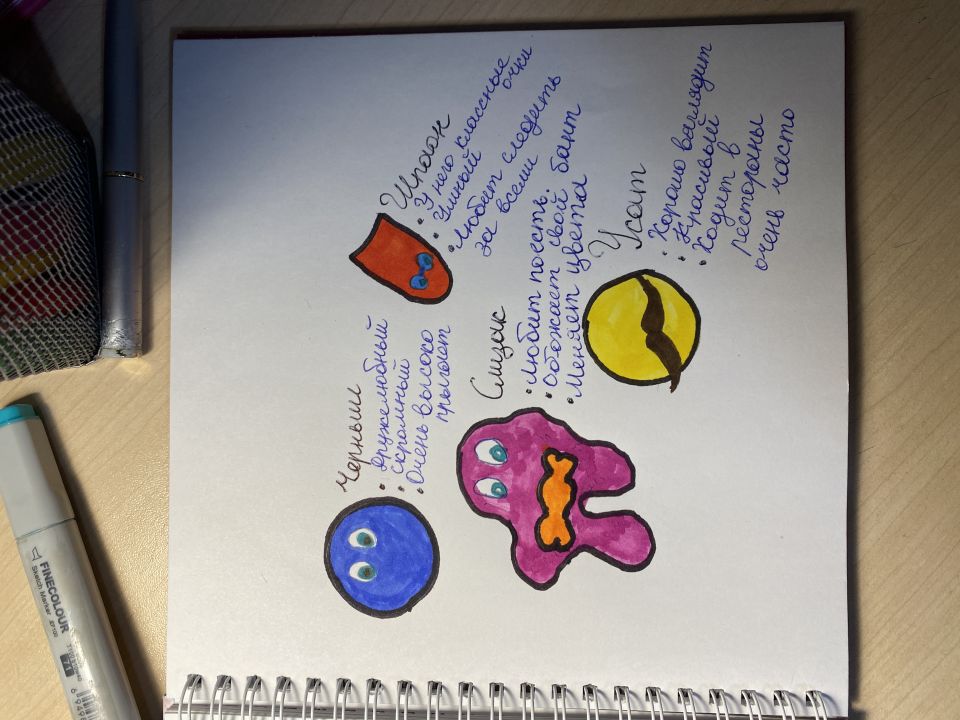 Черныш
• Дружелюбный
скромный
• Очень высоко
прыгает
Шпион
• У него классные
очки
Умный
• Любит следить
за всеми
Слизяк
• Любит поесть.
• Обожает свой бант
• Меняет цвета
Усат
• Хорошо выглядит
• Красивый
• Ходит в
рестораны
очень часто
FINECOLOUR
Sketch Marker
71